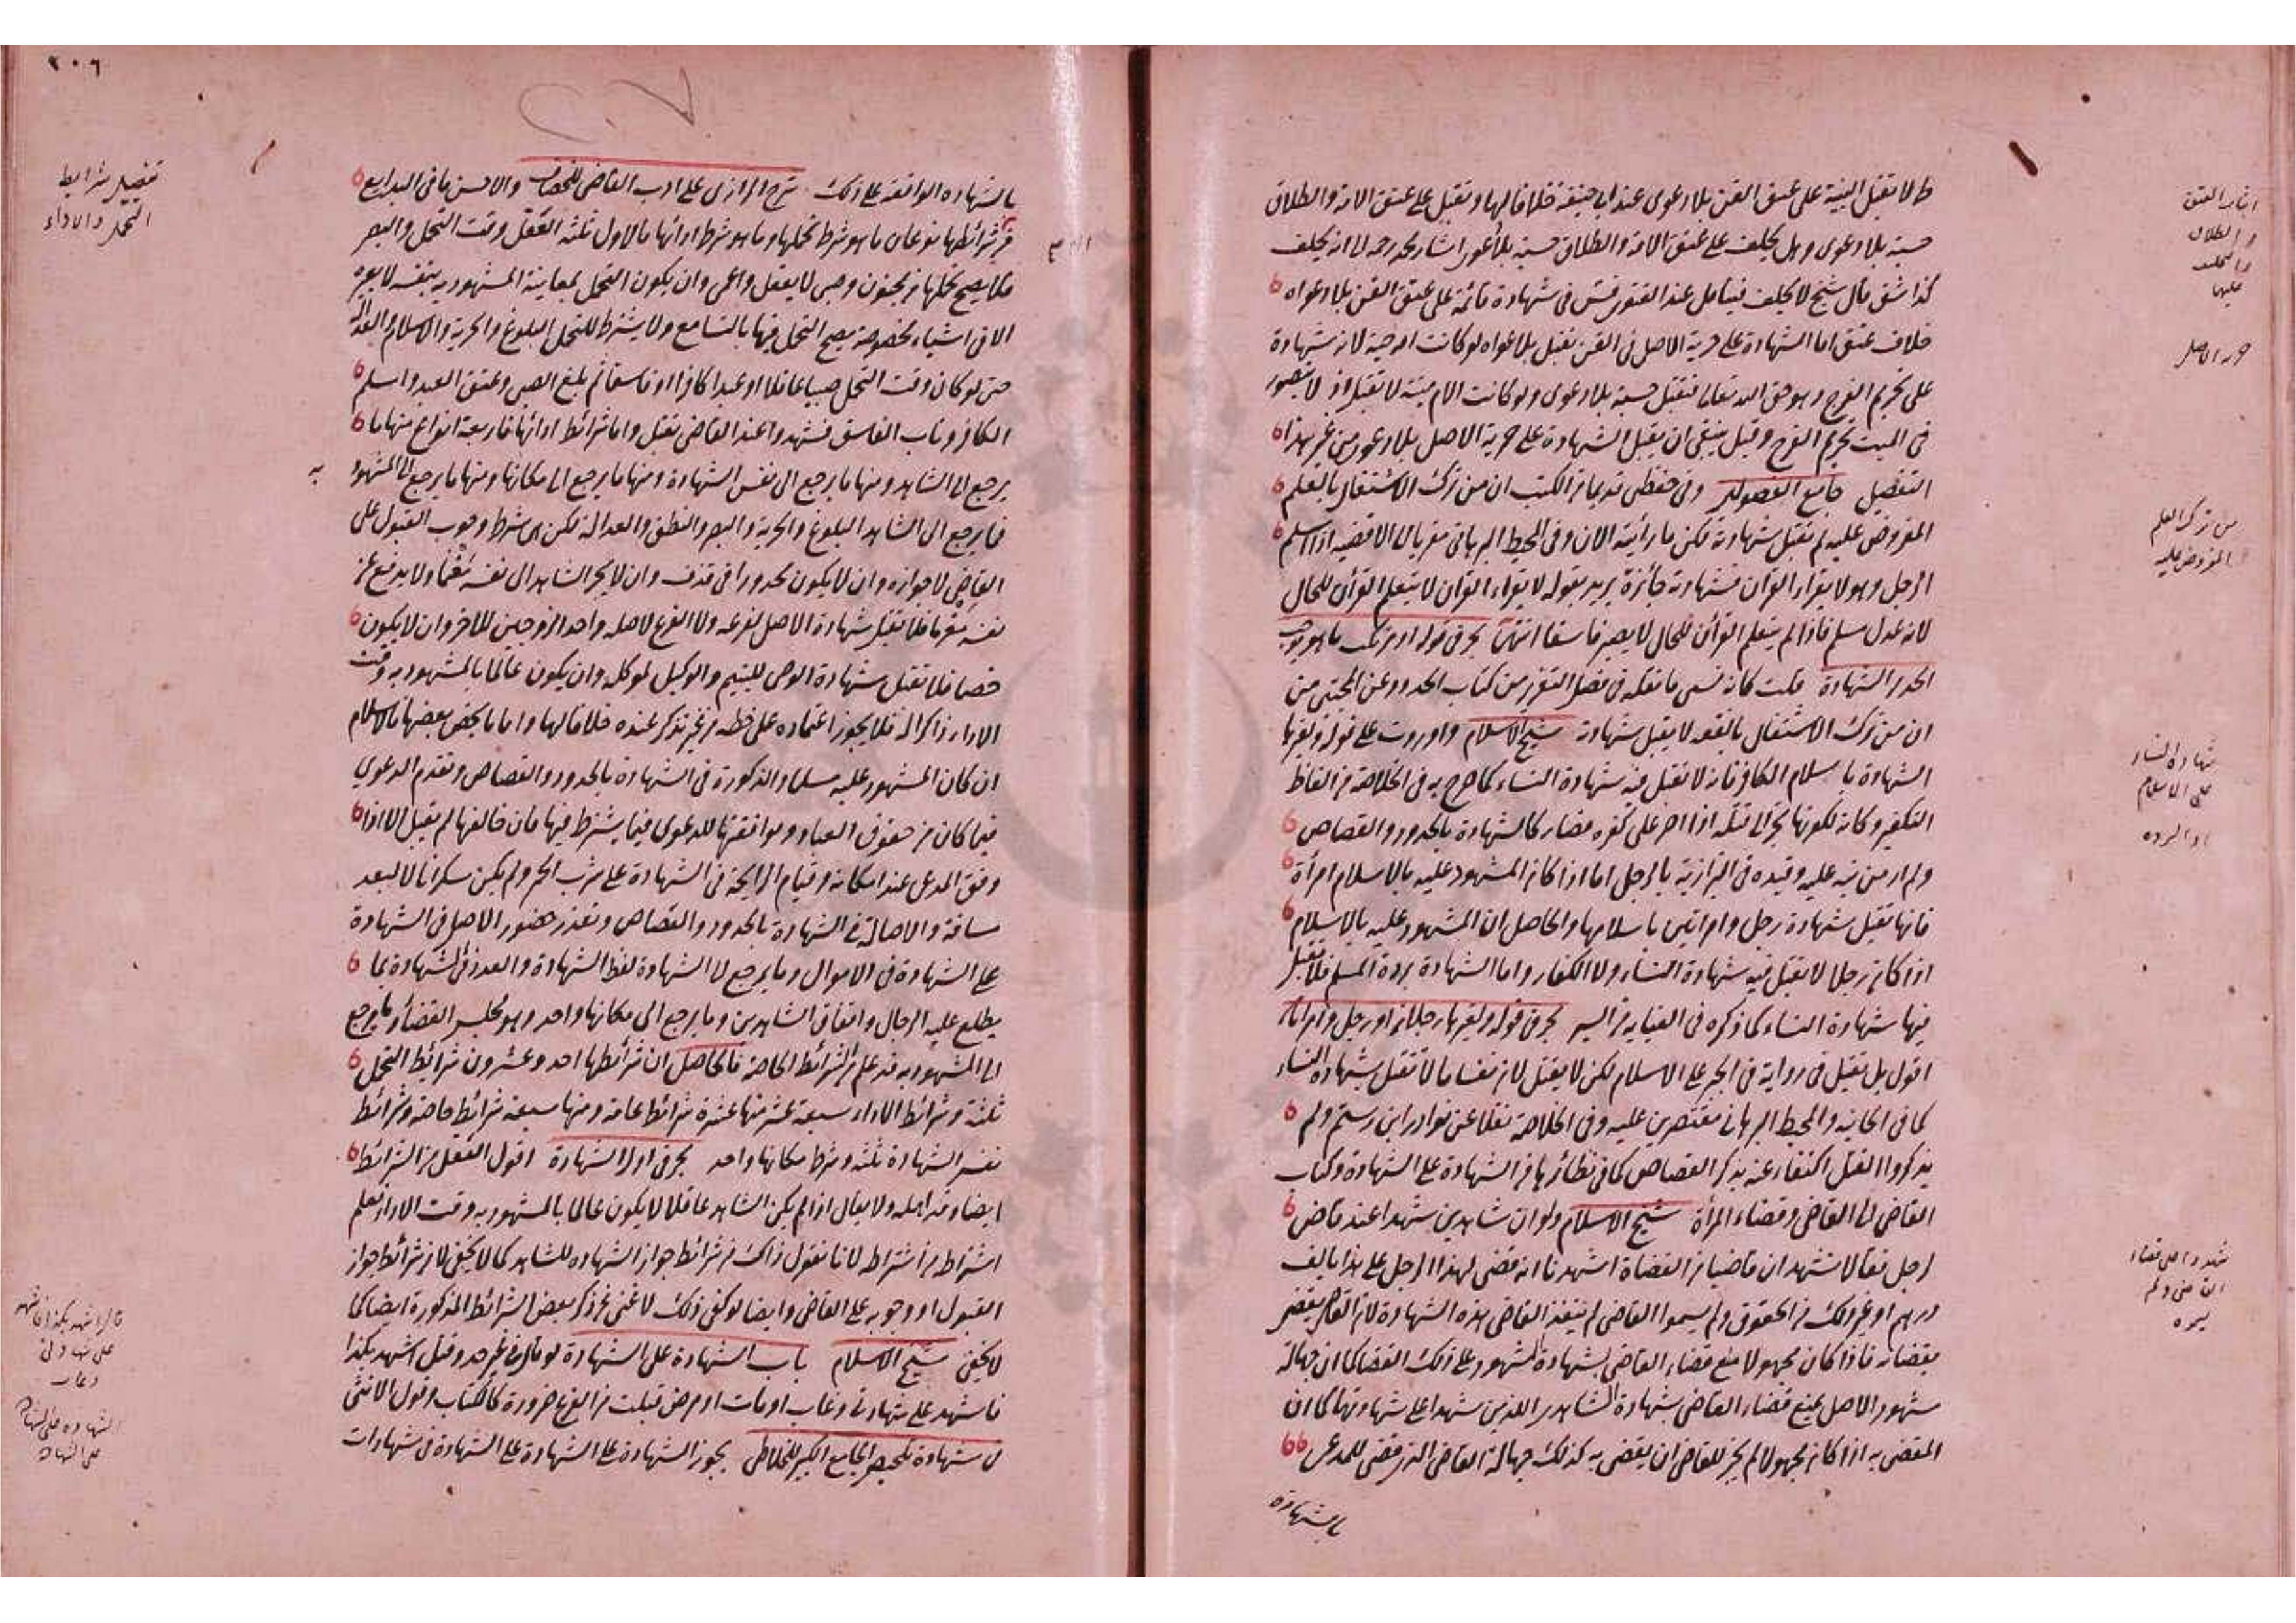 ط لا تقبل البينة على عتق القن بلا دعوى عند ابي حنيفة خلافا لهما وتقبل على عتق الامة والطلاق
حسبة بلا دعوى وهل يحلف على عتق الامة والطلاق حسبة بلا دعوى اشار محمد رحمه الى انه يحلف
كذا شق قال شيخ لا يحلف فيتأمل عند الفتوى فش في شهادة قائمة على عتق القن بلا دعواه
خلاف عتق اما الشهادة على حرية الاصل في القن تقبل بلا دعواه لو كانت امه حية لانه شهادة
على تحريم الفرج وهو حق الله تعالى فتقبل حسبة بلا دعوى ولو كانت الام ميتة لا تقبل اذ لا يتصور
في الميت تحريم الفرج وقيل ينبغي ان يقبل الشهادة على حرية الاصل بلا دعوى من غير هذا
التفصيل جامع الفصولين وفي حفظي قديما من الكتب ان من ترك الاشتغال بالعلم
المفروض عليه لم تقبل شهادته لكن ما رأيته الآن وفي المحيط البرهاني معزيا الى الاقضية اذا اسلم
الرجل وهو لا يقراء القرآن فشهادته جائزة يريد بقوله لا يقراء القرآن لا يتعلم القرآن للحال
لانه عدل مسلم فاذا لم يتعلم القرآن للحال لا يصير فاسقا انتهى بحر في قوله او مرتكب ما هو يوجب
الحد من الشهادة قلت كانه نسي ما نقله في فصل التعزير من كتاب الحدود عن المجتبى من
ان من ترك الاشتغال بالفقه لا يقبل شهادته شيخ الاسلام واوردت على قوله ولغيرها
الشهادة باسلام الكافر فانه لا تقبل فيه شهادة النساء كما صرح به في الخلاصة من الفاظ
التكفير وكانه لكونها تجر الى قتله اذا اصر على كفره فصار كالشهادة بالحدود والقصاص
ولم ار من نبه عليه وقيده في البزازية بالرجل اما اذا كان المشهود عليه بالاسلام امرأة
فانها تقبل شهادة رجل وامراتين باسلامها والحاصل ان المشهود عليه بالاسلام
اذا كان رجلا لا يقبل فيه شهادة النساء ولا الكفار واما الشهادة بردة المسلم فلا تقبل
فيها شهادة النساء كما ذكره في العناية من السير بحر في قوله ولغيرها رجلان او رجل وامراتان
اقول بل تقبل في رواية في الجبر على الاسلام لكن لا يقتل
كما في الخانية والمحيط البرهاني مقتصرين عليه وفي الخلاصة نقلا عن نوادر ابن رستم ولم
يذكروا القتل اكتفاء عنه بذكر القصاص كما في نظائرها من الشهادة على الشهادة وكتاب
القاضي الى القاضي وقضاء المرأة شيخ الاسلام ولو ان شاهدين شهدا عند قاض
لرجل فقالا نشهد ان قاضيا من القضاة اشهدنا انه قضى لهذا الرجل على هذا بالف
درهم او غير ذلك من الحقوق ولم يسموا القاضي لم ينفذ القاضي هذه الشهادة
بقضائه فاذا كان مجهولا منع قضاء القاضي بشهادة الشهود على ذلك القضا كما ان جهالة
شهود الاصل يمنع قضاء القاضي بشهادة الشاهدين اللذين شهدا على شهادتهما كما ان
المقضي به اذا كان مجهولا لم يجز للقاضي ان يقضي به كذلك جهالة القاضي الذي قضى للمدعي
بالشهادة
اثبات العتق
والطلاق
والتحليف
عليهما
حرية الاصل
من ترك العلم
المفروض عليه
شهادة النساء
على الاسلام
او الردة
شهدوا على قضاء
القاضي ولم
يسموه
٢٠٦
بالشهادة الواقعة على ذلك شرح الرازي على ادب القاضي للخصاف والاحسن ما في البدايع
من شرائطها نوعان ما هو شرط تحملها وما هو شرط ادائها فالاول ثلثة العقل وقت التحمل والبصر
فلا يصح تحملها من مجنون وصبي لا يعقل واعمى وان يكون التحمل بمعاينة المشهود به بنفسه لا بغيره
الا في اشياء مخصوصة يصح التحمل فيها بالتسامع ولا يشترط للتحمل البلوغ والحرية والاسلام والعدالة
حتى لو كان وقت التحمل صبيا عاقلا او عبدا كافرا او فاسقا ثم بلغ الصبي وعتق العبد واسلم
الكافر وتاب الفاسق فشهدوا عند القاضي تقبل واما شرائط ادائها فاربعة انواع منها ما
يرجع الى الشاهد ومنها ما يرجع الى نفس الشهادة ومنها ما يرجع الى مكانها ومنها ما يرجع الى المشهود
به
فما يرجع الى الشاهد البلوغ والحرية والبصر والنطق والعدالة لكن هي شرط وجوب القبول على
القاضي لا جوازه وان لا يكون محدودا في قذف وان لا يجر الشاهد الى نفسه مغنما ولا يدفع عن
نفسه مغرما فلا تقبل شهادة الاصل لفرعه ولا الفرع لاصله واحد الزوجين للآخر وان لا يكون
خصما فلا تقبل شهادة الوصي لليتيم والوكيل لموكله وان يكون عالما بالمشهود به وقت
الاداء ذاكرا له فلا يجوز اعتماده على خطه من غير تذكر عنده خلافا لهما واما ما يخص بعضها فالاسلام
ان كان المشهود عليه مسلما والذكورة في الشهادة بالحدود والقصاص وتقدم الدعوى
فيما كان من حقوق العباد وموافقتها للدعوى فيما يشترط فيها فان خالفها لم يقبل الا اذا
وفق المدعي عند امكانه وقيام الرايحة في الشهادة على شرب الخمر ولم يكن سكرانا لا لبعد
مسافة والاصالة في الشهادة بالحدود والقصاص وتعذر حضور الاصل في الشهادة
على الشهادة في الاموال وما يرجع الى الشهادة لفظ الشهادة والعدد في الشهادة بما
يطلع عليه الرجال واتفاق الشاهدين وما يرجع الى مكانها واحد وهو مجلس القضاء وما يرجع
الى المشهود به قد علم من الشرائط الخاصة فالحاصل ان شرائطها احد وعشرون شرائط التحمل
ثلثة وشرائط الاداء سبعة عشر منها عشرة شرائط عامة ومنها سبعة شرائط خاصة وشرائط
نفس الشهادة ثلثة وشرط مكانها واحد بحر في اول الشهادة اقول العقل من الشرائط
ايضا وقد اهمله ولا يقال اذا لم يكن الشاهد عاقلا لا يكون عالما بالمشهود به وقت الاداء فعلم
اشتراطه من اشتراطه لانا نقول ذاك من شرائط جواز الشهادة للشاهد كما لا يخفى لا من شرائط جواز
القبول او وجوبه على القاضي وايضا لو كفى ذلك لاغنى عن ذكر بعض الشرائط المذكورة ايضا كما
لا يخفى شيخ الاسلام باب الشهادة على الشهادة لو قال في غير حد وقتل اشهد بكذا
فاشهد على شهادتي وغاب او مات او مرض قبلت من الفرع ضرورة كالكتاب وقول الانثى
شهادة تلخيص الجامع الكبير للخلاطي يجوز الشهادة على الشهادة على الشهادة في شهادات
تفصيل شرايط
التحمل والاداء
قال اشهد بكذا فاشهد
على شهادتي
وغاب
الشهادة على الشهادة
على الشهادة